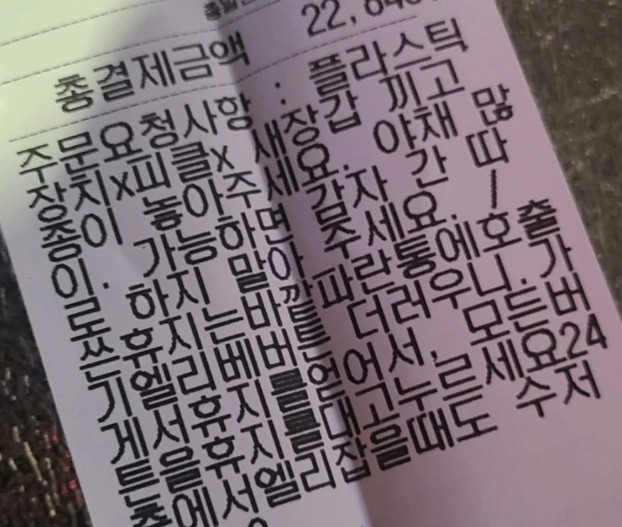 22,
총결제금액
주문요청사항 : 플라스틱
장지x피클x 새장갑 끼고
종이 놓아주세요. 야채 많
이. 가능하면 감자 간 따
로 하지 말아 주세요. /
쓴휴지는바깥파란통에호출
기엘리베버튼 더러우니.가
게서휴지를얻어서. 모든버
튼을휴지를대고누르세요24
층에서엘리잡을때도 수저